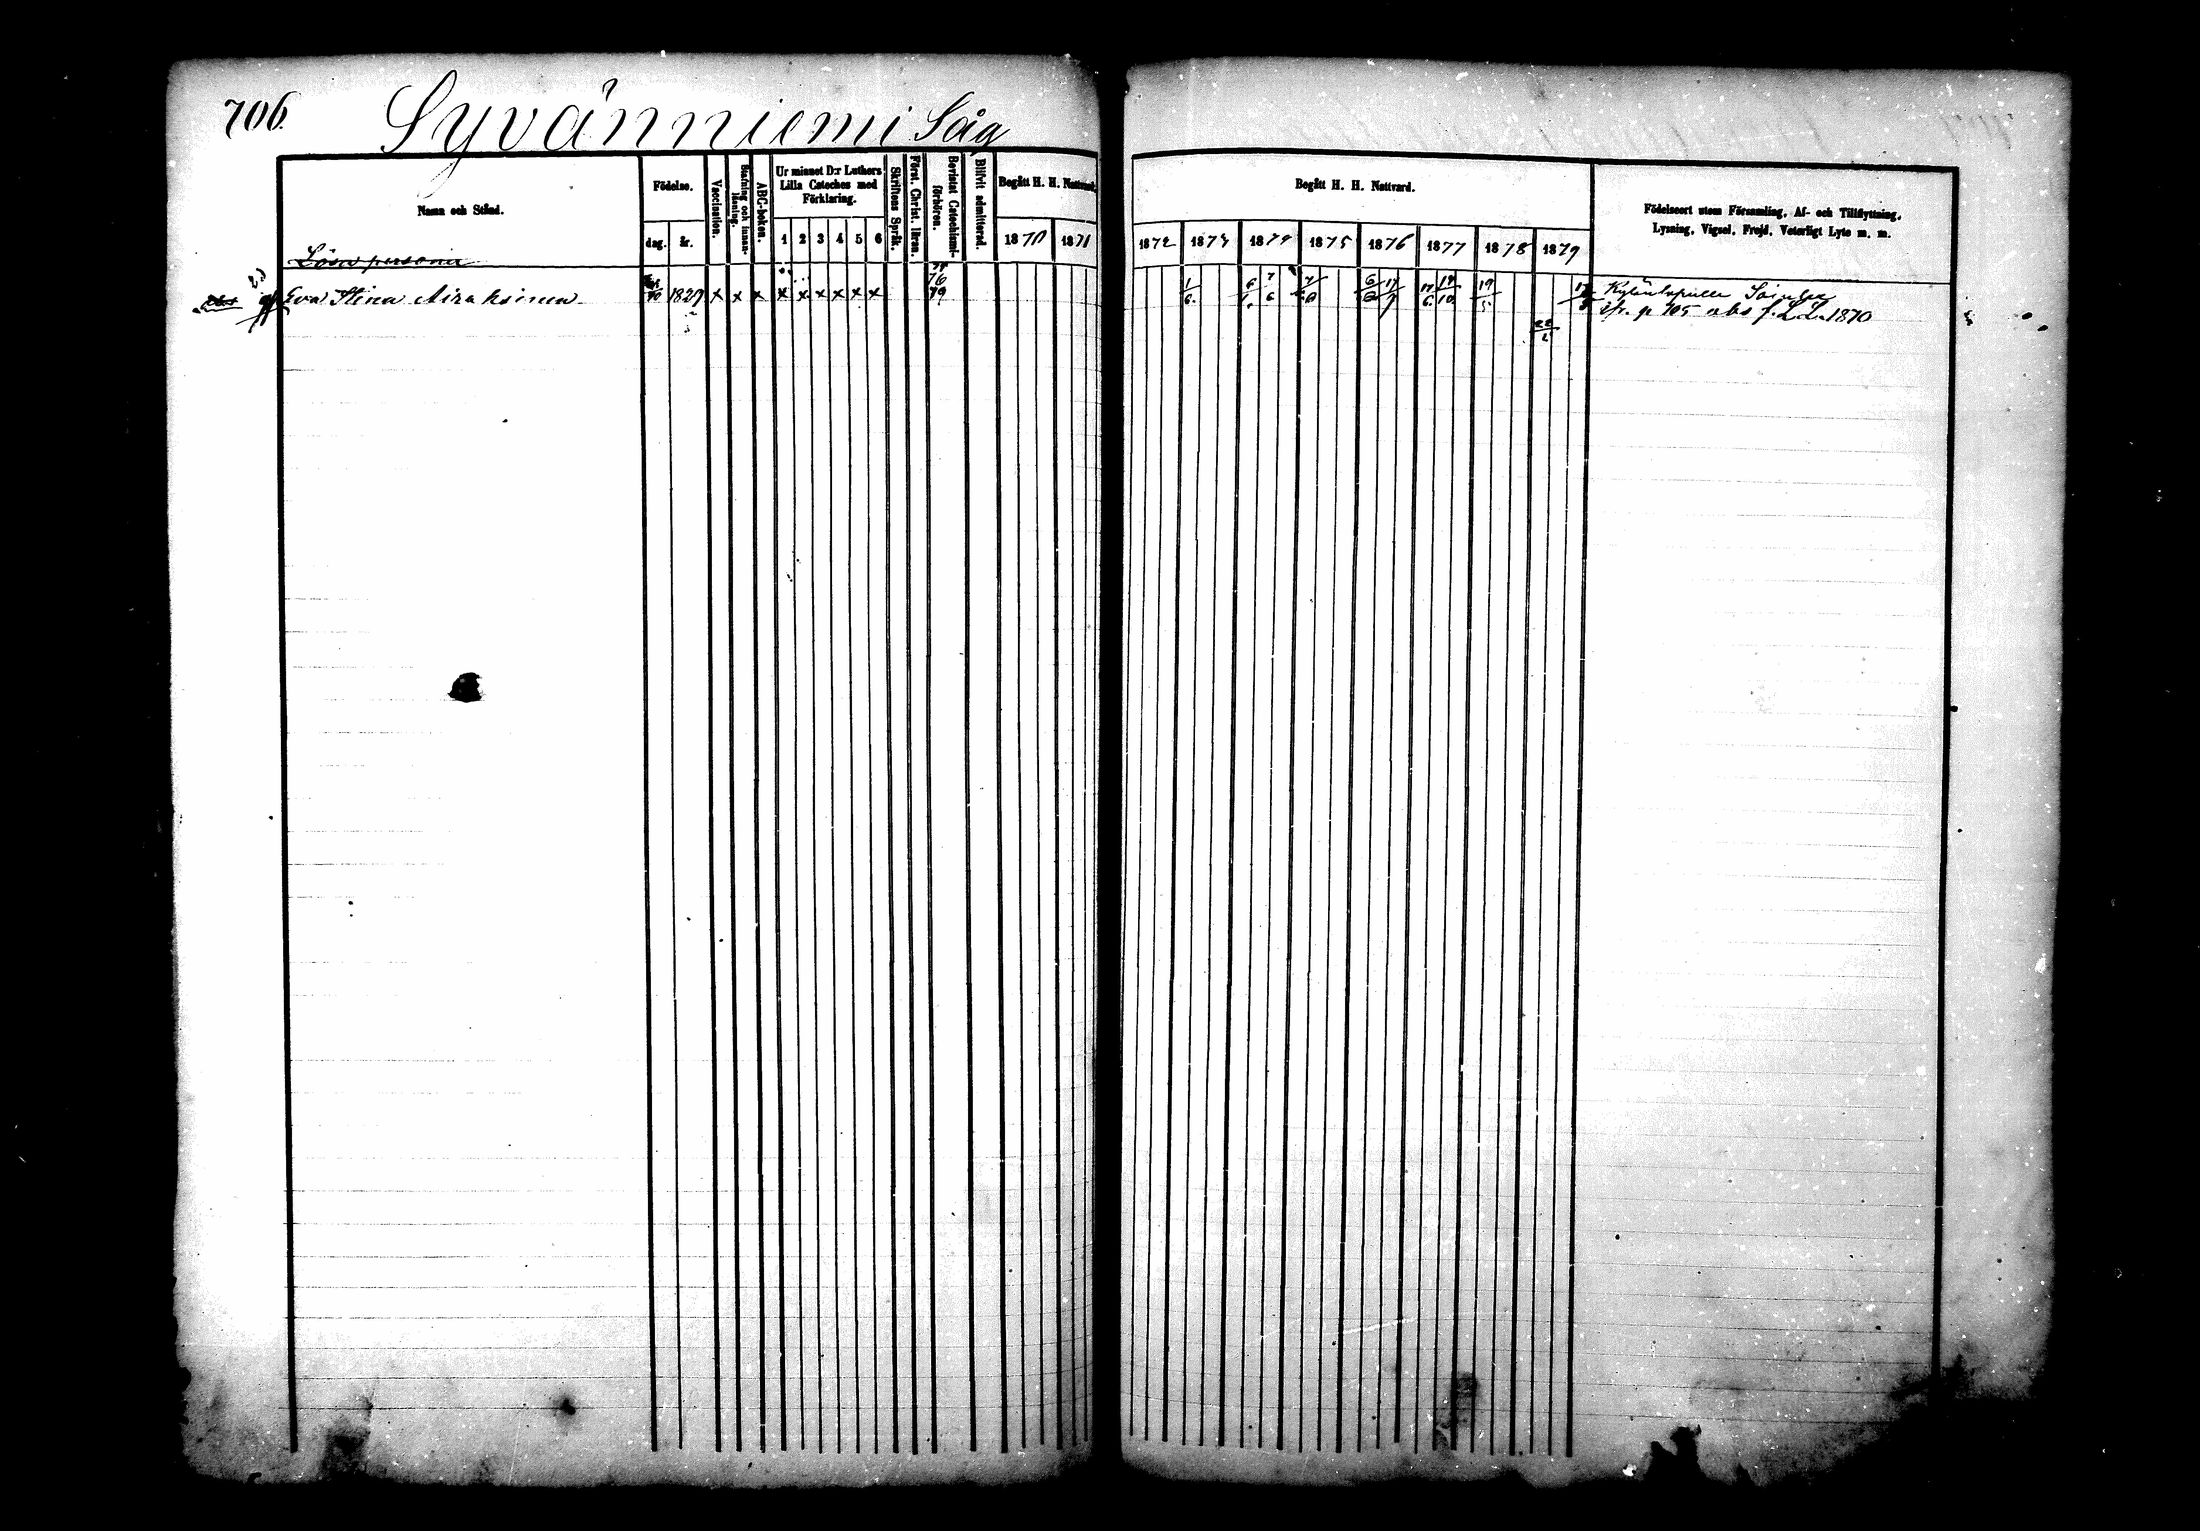 706.
Syvänniemi Såg
Namn och Stånd.
Födelse.
dag. år.
Vaccination.
Stafning och innanläsning.
ABC-boken.
Ur minnet D:r Luthers
Lilla Cateches med
Förklaring.
1 2 3 4 5 6
Skriftens Språk.
Först. Christ. läran.
Bevistat Catechismi-
förhören.
Blifvit admitterad.
Begått H. H. Nattvard.
1870 1871
Begått H. H. Nattvard.
1872 1873 1874 1875 1876 1877 1878 1879
Födelseort utom Församling, Af- och Tillflyttning,
Lysning, Vigsel, Frejd, Vaterligt Lyte m. m.
Lösa personer
Eva Stina Airaksinen 1827 x x x x x x x x x
76
79
1/6 6/7 19/5
p 705 abs f. L.L. 1870